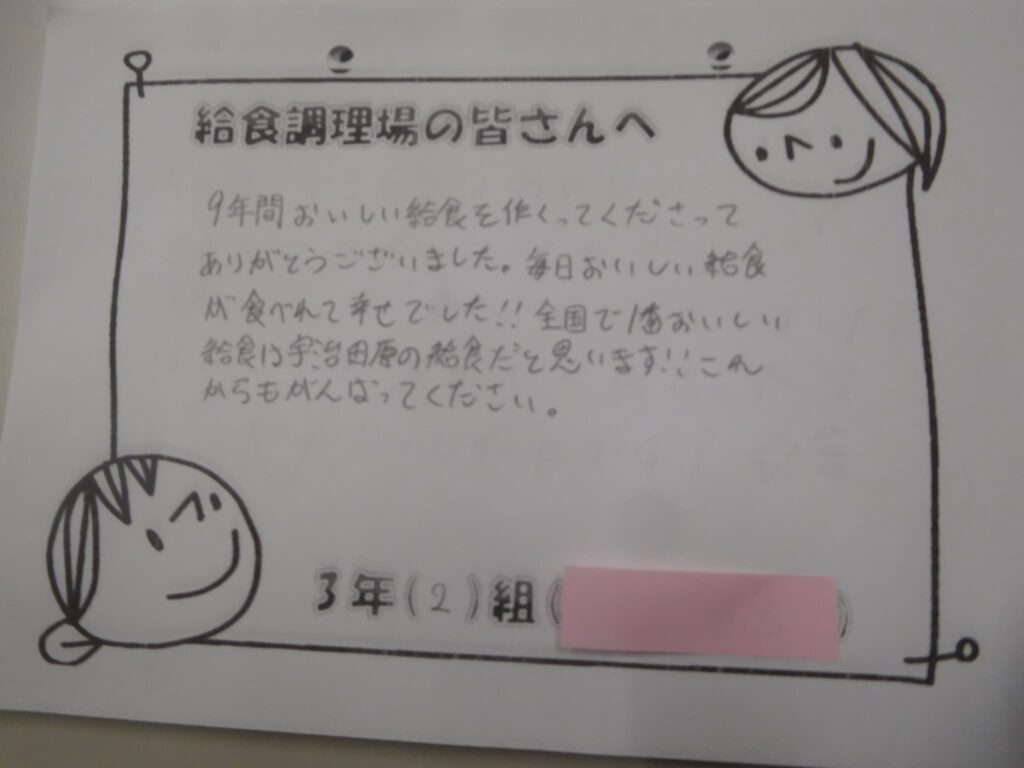 給食調理場の皆さんへ
9年間おいしい給食を作くってくださって
ありがとうございました。毎日おいしい給食
が食べれて幸せでした!!全国で1番おいしい
給食は宇治田原の給食だと思います!!これ
からもがんばってください。
3年(2)組(      )